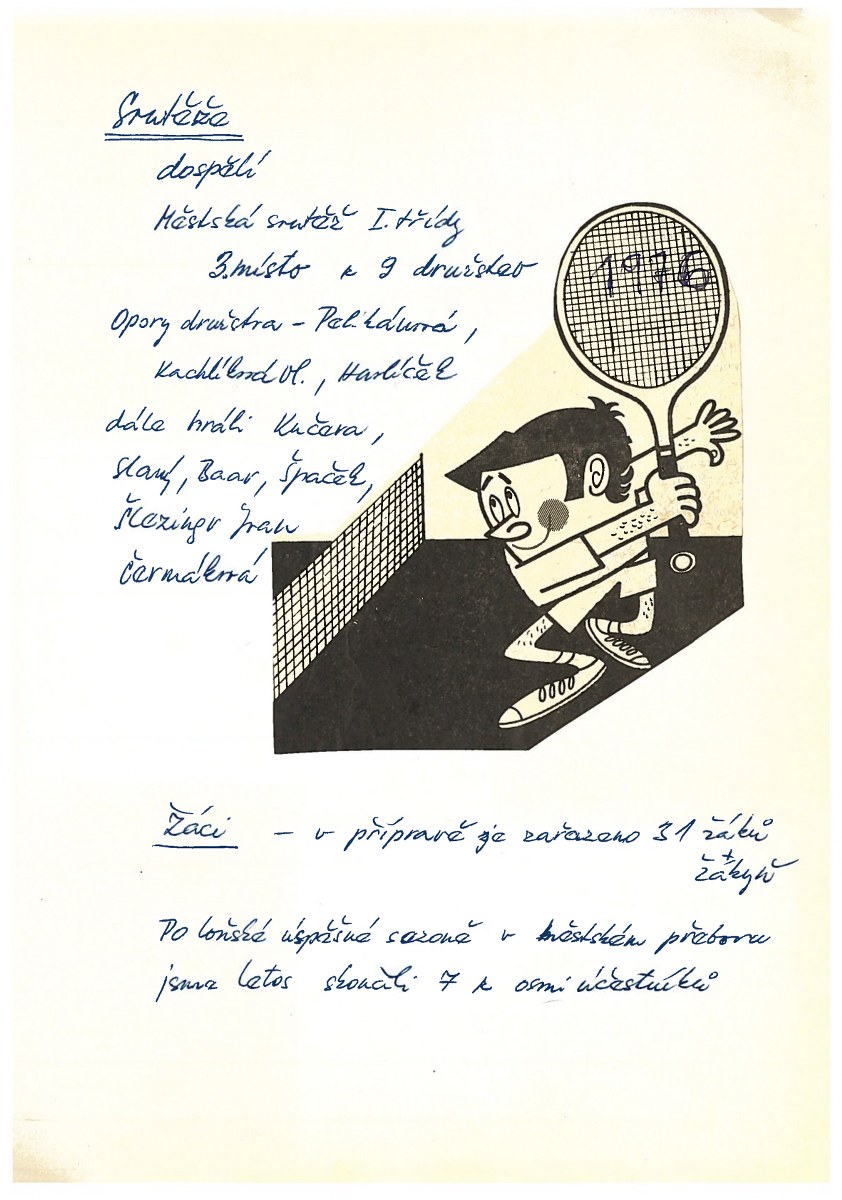 Soutěže
dospělí
Městská soutěž I. třídy
3. místo z 9 družstev
1976
Opory družstva - Pelikánová,
Kachlíková Vl., Havlíček
dále hráli Kučera,
Slaný, Baar, Špaček,
Šlezingr Ivan
Čermáková
Žáci - v přípravě je zařazeno 31 žáků
+
žákyň
Po loňské úspěšné sezoně v městském přeboru
jsme letos skončili 7 z osmi účastníků